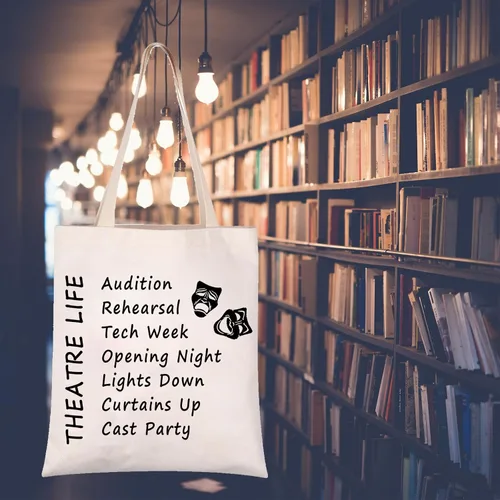 THEATRE LIFE
Audition
Rehearsal
Tech Week
Opening Night
Lights Down
Curtains Up
Cast Party